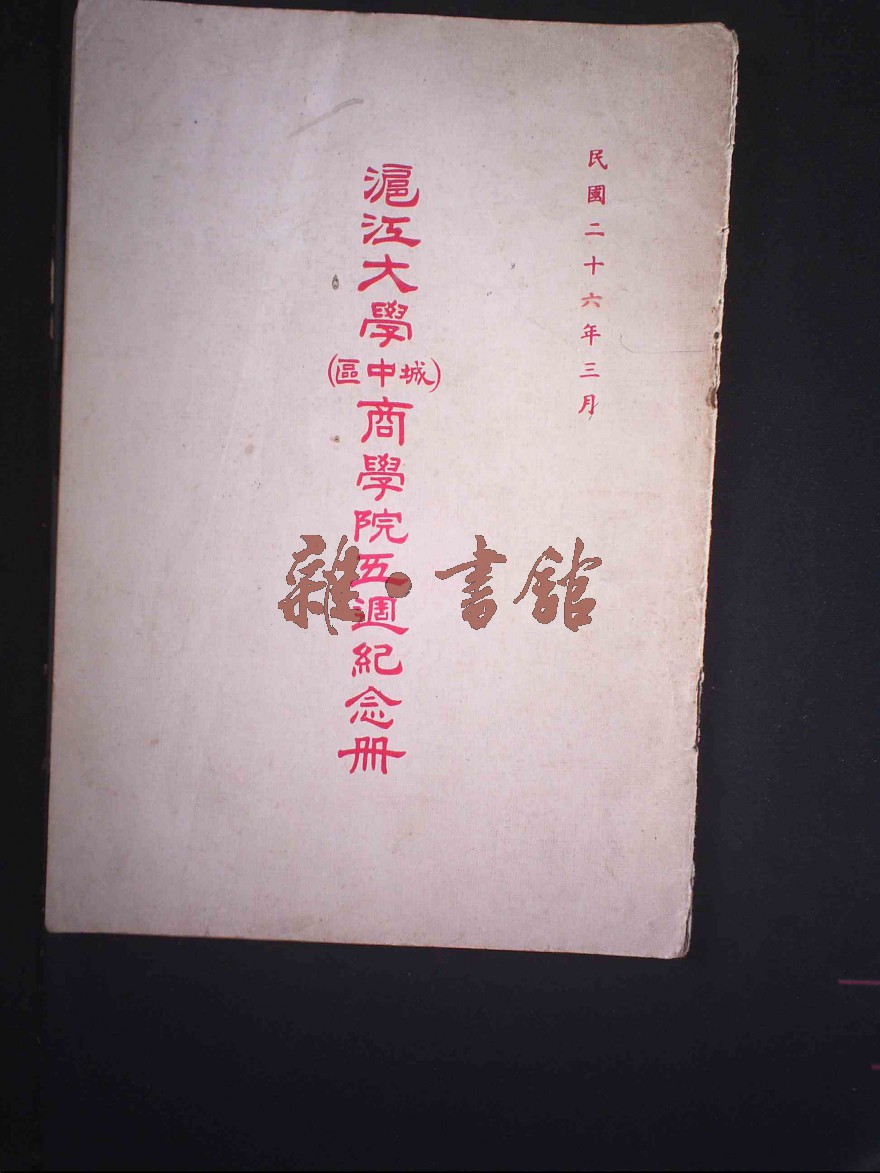 民國二十六年三月
滬江大學(城中區)商學院五週紀念册
雜·書館